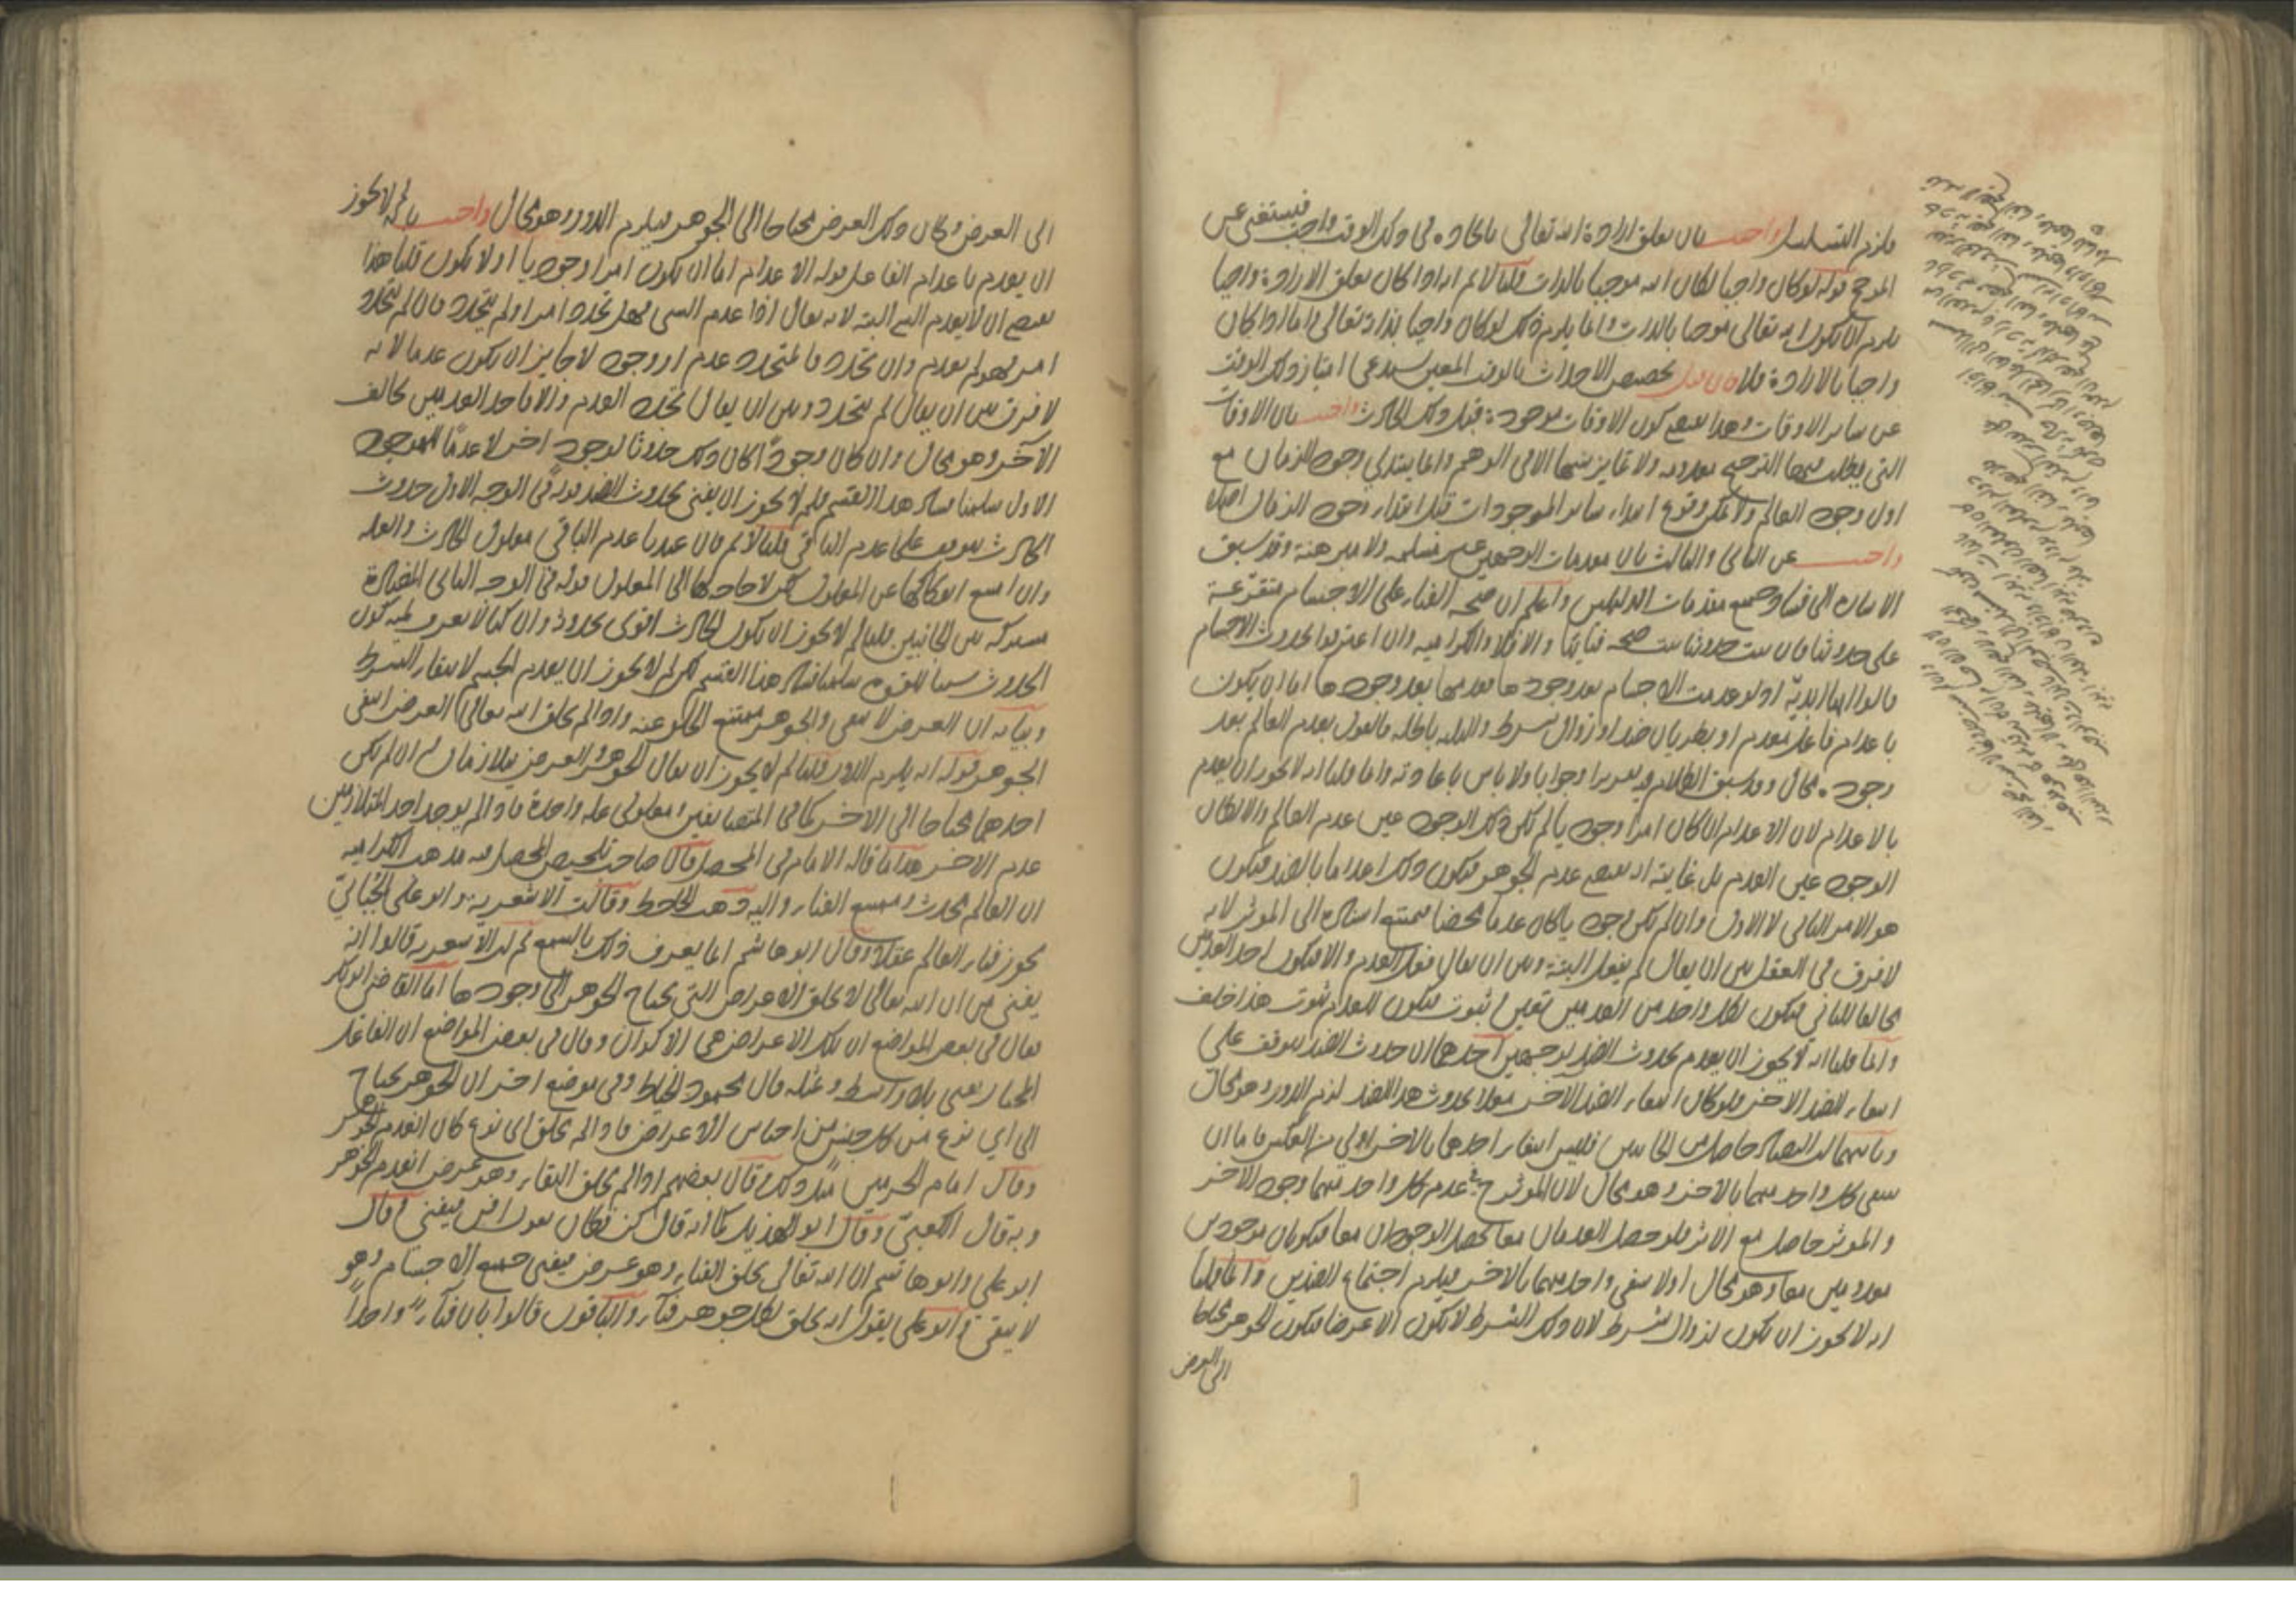 فلزم التسلسل واجيب بان تعلق ارادة الله تعالى بايجاده في ذلك الوقت واجب فيستغنى عن
المرجح قوله لو كان واجبا لكان الله موجبا بالذات قلنا لا نم انه اذا كان تعلق الارادة واجبا
يلزم ان يكون الله تعالى موجبا بالذات وانما يلزم ذلك لو كان واجبا بذاته تعالى واما اذا كان
واجبا بالارادة فلا فان قيل تخصيص الاحداث بالوقت المعين يستدعي امتياز ذلك الوقت
عن ساير الاوقات وهذا يقتضي كون الاوقات موجودة قبل ذلك الحادث واجيب بان الاوقات
التي يطلب فيها الترجيح معدومة ولا تمايز بينها الا في الوهم وانما يبتدئ وجود الزمان مع
اول وجود العالم ولا يمكن وقوع ابتداء ساير الموجودات قبل ابتداء وجود الزمان اصلا
واجيب عن الثاني والثالث بان مقدمات الوجهين غير مسلمة ولا مبرهنة وقد سبق
الاشارة الى فساد جميع مقدمات الدليلين واعلم ان صحة الفناء على الاجسام متفرعة
على حدوثها فان ثبت حدوثها ثبت صحة فنايها والا فلا والكرامية وان اعترفوا بحدوث الاجسام
قالوا انها ابدية اذ لو عدمت الاجسام بعد وجودها فعدمها بعد وجودها اما ان يكون
باعدام فاعل معدم او بطريان ضد او زوال شرط والثلثة باطلة فالقول بعدم العالم بعد
وجوده محال وقد سبق الكلام فيه تقريرا وجوابا ولا باس باعادته وانما قلنا انه لا يجوز ان يعدم
بالاعدام لان الاعدام ان كان امرا وجوديا لم يكن ذلك الوجود عين عدم العالم والا لكان
الوجود عين العدم بل غايته انه يقتضي عدم الجوهر فيكون ذلك اعداما بالضد فيكون
هو الامر الثاني لا الاول وان لم يكن وجوديا كان عدما محضا يمتنع اسناده الى المؤثر لانه
لا فرق في العقل بين ان يقال لم يفعل البتة وبين ان يقال فعل العدم والا فيكون احد العدمين
مخالفا للثاني فيكون لكل واحد من العدمين تعين وثبوت فيكون للعدم ثبوت هذا خلف
وانما قلنا انه لا يجوز ان يعدم بحدوث الضد لوجهين احدهما ان حدوث الضد يتوقف على
انتفاء الضد الاخر فلو كان انتفاء الضد الاخر معللا بحدوث هذا الضد لزم الدور وهو محال
وثانيهما ان التضاد حاصل من الجانبين فليس انتفاء احدهما بالاخر اولى من العكس فاما ان
ينتفي كل واحد منهما بالاخر وهو محال لان المؤثر في عدم كل واحد منهما وجود الاخر
والمؤثر حاصل مع الاثر فلو حصل العدمان معا لحصل الوجودان معا فيكونان موجودين
معدومين معا وهو محال او لا ينتفي واحد منهما بالاخر فيلزم اجتماع الضدين وانما قلنا
انه لا يجوز ان يكون لزوال شرط لان ذلك الشرط لا يكون الا عرضا فيكون الجوهر محتاجا
الى العرض
الى العرض وكان ذلك العرض محتاجا الى الجوهر فيلزم الدور وهو محال واجيب بانه لم لا يجوز
ان يعدم باعدام الفاعل قوله الاعدام اما ان يكون امرا وجوديا او لا يكون قلنا هذا
يقتضي ان لا يعدم الشيء البتة لانه يقال اذا عدم الشيء فهل تجدد امر او لم يتجدد فان لم يتجدد
امر فهو لم يعدم وان تجدد فالمتجدد عدم او وجود لا جايز ان يكون عدما لانه
لا فرق بين ان يقال لم يتجدد وبين ان يقال تجدد العدم والا فاحد العدمين يخالف
الآخر وهو محال وان كان وجودا كان ذلك حدوثا لوجود اخر لا عدما للموجود
الاول سلمنا فساد هذا القسم فلم لا يجوز ان يفنى بحدوث الضد قوله في الوجه الاول حدوث
الحادث يتوقف على عدم الباقي قلنا لا نم فان عندنا عدم الباقي معلول الحادث والعلة
وان امتنع انفكاكها عن المعلول لكن لا حاجة لها الى المعلول قوله في الوجه الثاني المضادة
مشتركة من الجانبين قلنا لم لا يجوز ان يكون الحادث اقوى بحدوثه وان كنا لا نعرف لمية كون
الحدوث سببا للقوة سلمنا فساد هذا القسم لكن لم لا يجوز ان يعدم الجسم لانتفاء الشرط
وبيانه ان العرض لا يبقى والجوهر يمتنع الخلو عنه فاذا لم يخلق الله تعالى العرض انتفى
الجوهر قوله انه يلزم الدور قلنا لم لا يجوز ان يقال الجوهر والعرض متلازمان وان لم يكن
احدهما محتاجا الى الاخر كما في المتضايفين ومعلولي علة واحدة فاذا لم يوجد احد المتلازمين
عدم الاخر هذا ما قاله الامام في المحصل قال صاحب تلخيص المحصل فيه مذهب الكرامية
ان العالم محدث وممتنع الفناء واليه ذهب الجاحظ وقالت الاشعرية وابو علي الجبائي
يجوز فناء العالم عقلا وقال ابو هاشم انما يعرف ذلك بالسمع ثم ان الاشعرية قالوا انه
يفنى من ان الله تعالى لا يخلق الاعراض التي يحتاج الجوهر الى وجودها اما القاضي ابو بكر
فقال في بعض المواضع ان تلك الاعراض هي الاكوان وقال في بعض المواضع ان الفاعل
المختار يفني بلا واسطة وبمثله قال محمود الخياط وفي موضع اخر ان الجوهر يحتاج
الى اي نوع من كل جنس من اجناس الاعراض فاذا لم يخلق اي نوع كان انعدم الجوهر
وقال امام الحرمين مثل ذلك وقال بعضهم اذا لم يخلق البقاء وهو عرض انعدم الجوهر
وبه قال الكعبي وقال ابو الهذيل كما انه قال كن فكان يقول افن فيفنى وقال
ابو علي وابو هاشم ان الله تعالى يخلق الفناء وهو عرض فيفنى جميع الاجسام وهو
لا يبقى وابو علي يقول انه يخلق لكل جوهر فناء والباقون قالوا بان فناء واحدا